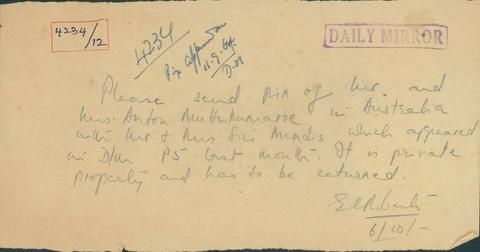 4234/12
DAILY MIRROR
4234
Pix appeared on
11.9.64
D.M
Please send pix of Mr. and
Mrs. Anton Muttukumaroe in Australia
with Mr + Mrs Siri Mendis which appeared
in D/M P5 last month. It is private
property and has to be returned.
6/10/-